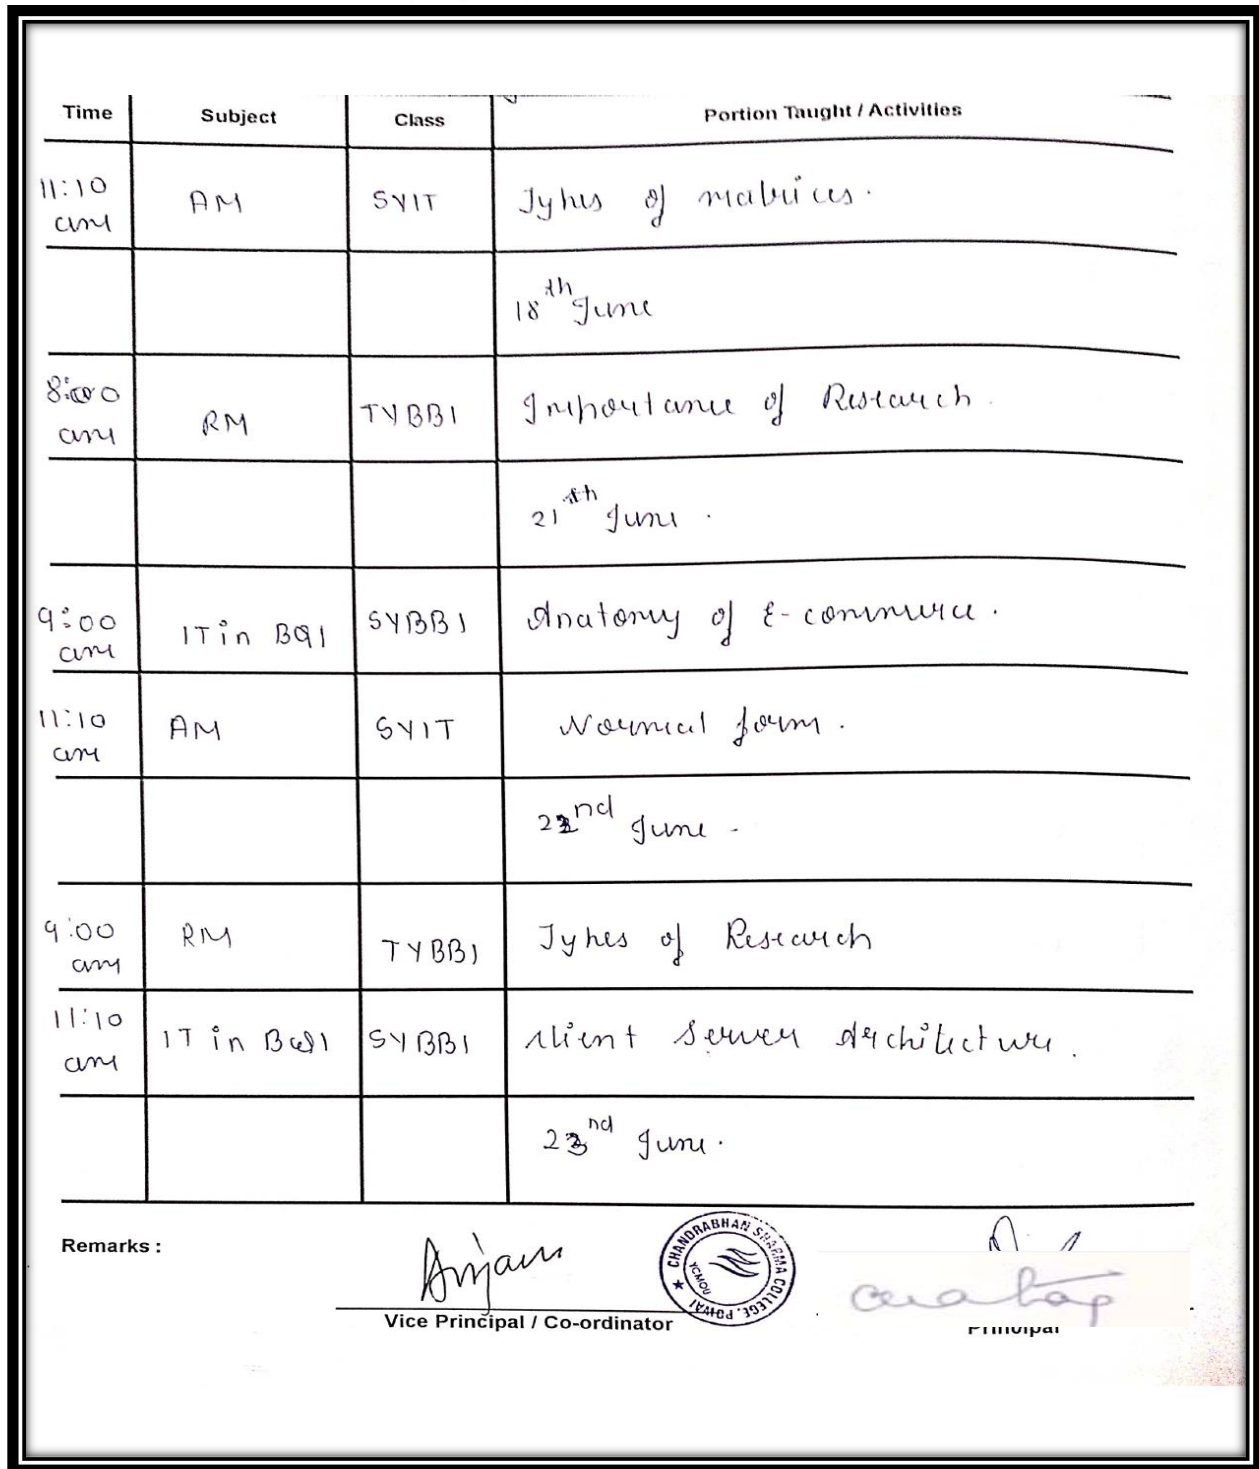 Time Subject Class Portion Taught / Activities
11:10 am AM SYIT Types of matrices.
18th June
8:00 am RM TYBBI Importance of Research.
21th June.
9:00 am IT in B&I SYBBI Anatomy of E-commerce.
11:10 am AM SYIT Normal form.
22nd June -
9:00 am RM TYBBI Types of Research
11:10 am IT in B&I SYBBI Client Server Architecture.
23nd June.
Remarks :
Anjam
CHANDRABHAN SHARMA COLLEGE, POWAI ★
YCMOU
Vice Principal / Co-ordinator
Principal